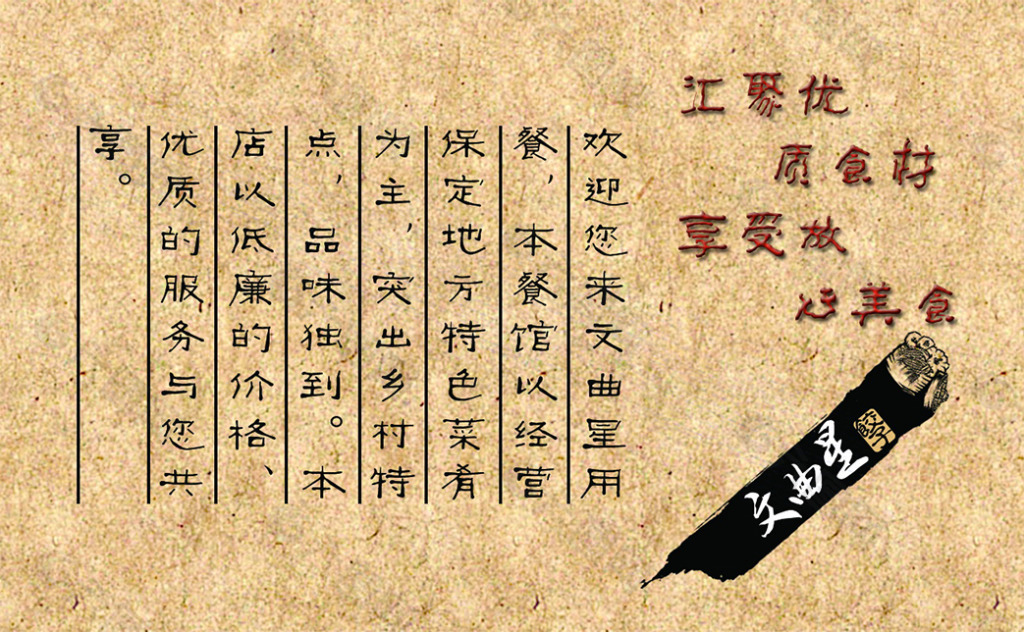 汇聚优
质食材
享受放
心美食
欢迎您来文曲星用
餐，本餐馆以经营
保定地方特色菜肴
为主，突出乡村特
点，品味独到。本
店以低廉的价格、
优质的服务与您共
享。
文曲星